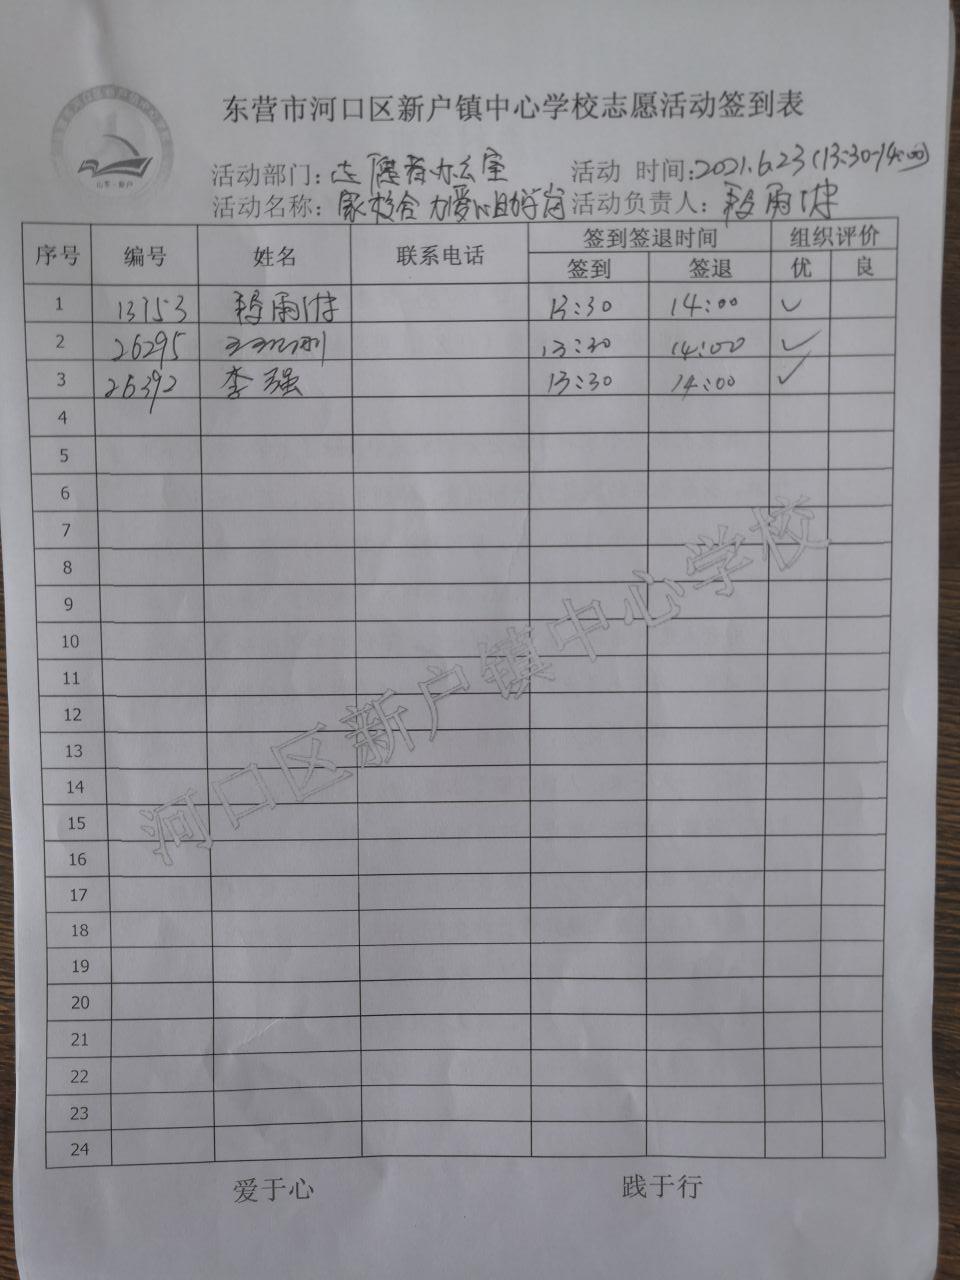 东营市河口区新户镇中心学校志愿活动签到表
山东·新户
活动部门：志愿者办公室 活动 时间：2021.6.23(13:30-14:00)
活动名称：家校合力爱心助学岗 活动负责人：
序号 编号 姓名 联系电话 签到签退时间 组织评价
签到 签退 优 良
1 13153 13:30 14:00 ✓
2 26295 13:30 14:00 ✓
3 26392 李强 13:30 14:00 ✓
4
5
6
7
8
9
10
11
12
13
14
15
16
17
18
19
20
21
22
23
24
河口区新户镇中心学校
爱于心 践于行